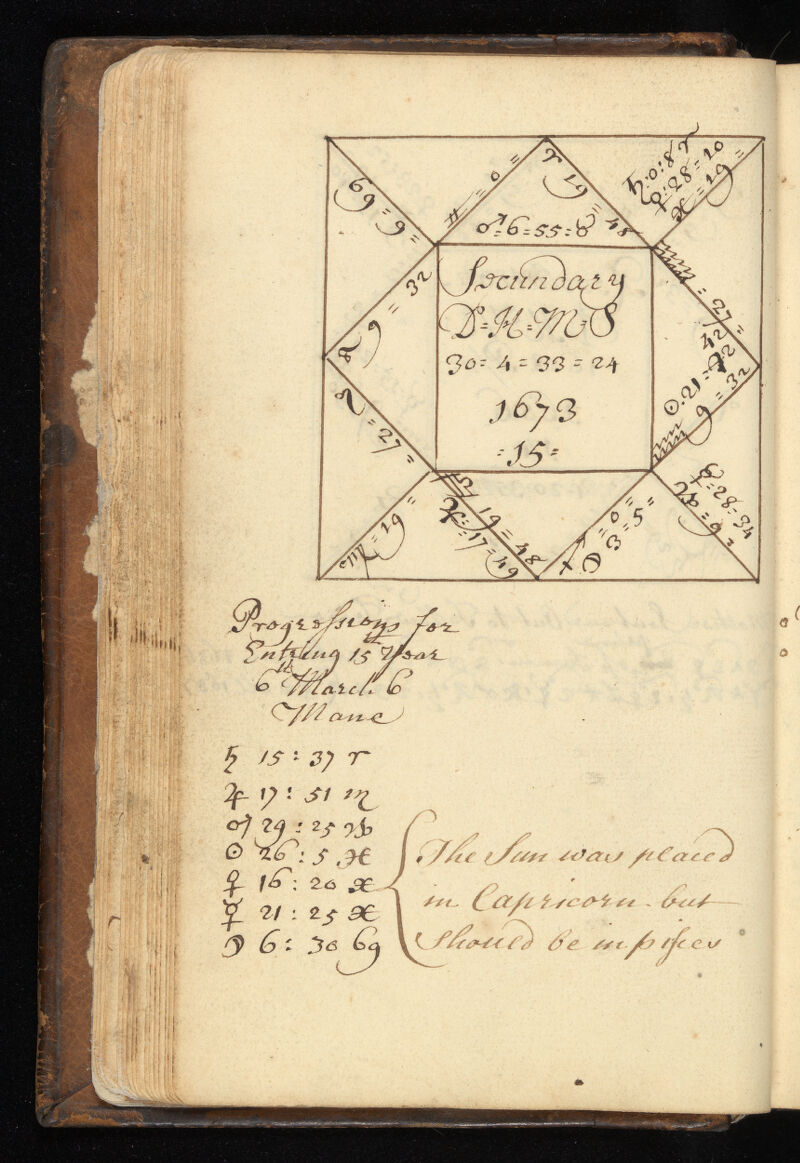 ♋ 9 = 9 =
♉ = 0 =
♈ 19 = 48
♂ = 6 = 55 = ♉
♄ : 0 : 8 ♈
♀ : 28 = 20
♓ = 19 =
♒ = 27 =
42
☉ . 21 =
♒ 9 = 32
♌ 9 = 32
♌ = 27 =
♍ = 19 =
♎ 19 = 48
♃ = 17 = 49
♐ = 0 =
☽ 3 = 5 =
☿ = 28 = 34
♑ = 9 =
Secundary
D = H = M = S
30 = 4 = 33 = 24
1673
= 15 =
Progressions for
Entring 15th Year
6th March 6
Mane
♄ 15 : 37 ♈
♃ 17 : 51 ♏
♂ 29 : 25 ♑
☉ 26 : 5 ♓
♀ 16 : 20 ♓
☿ 21 : 25 ♓
☽ 6 : 30 ♋
The Sun was placed
in Capricorn but
should be in pisces